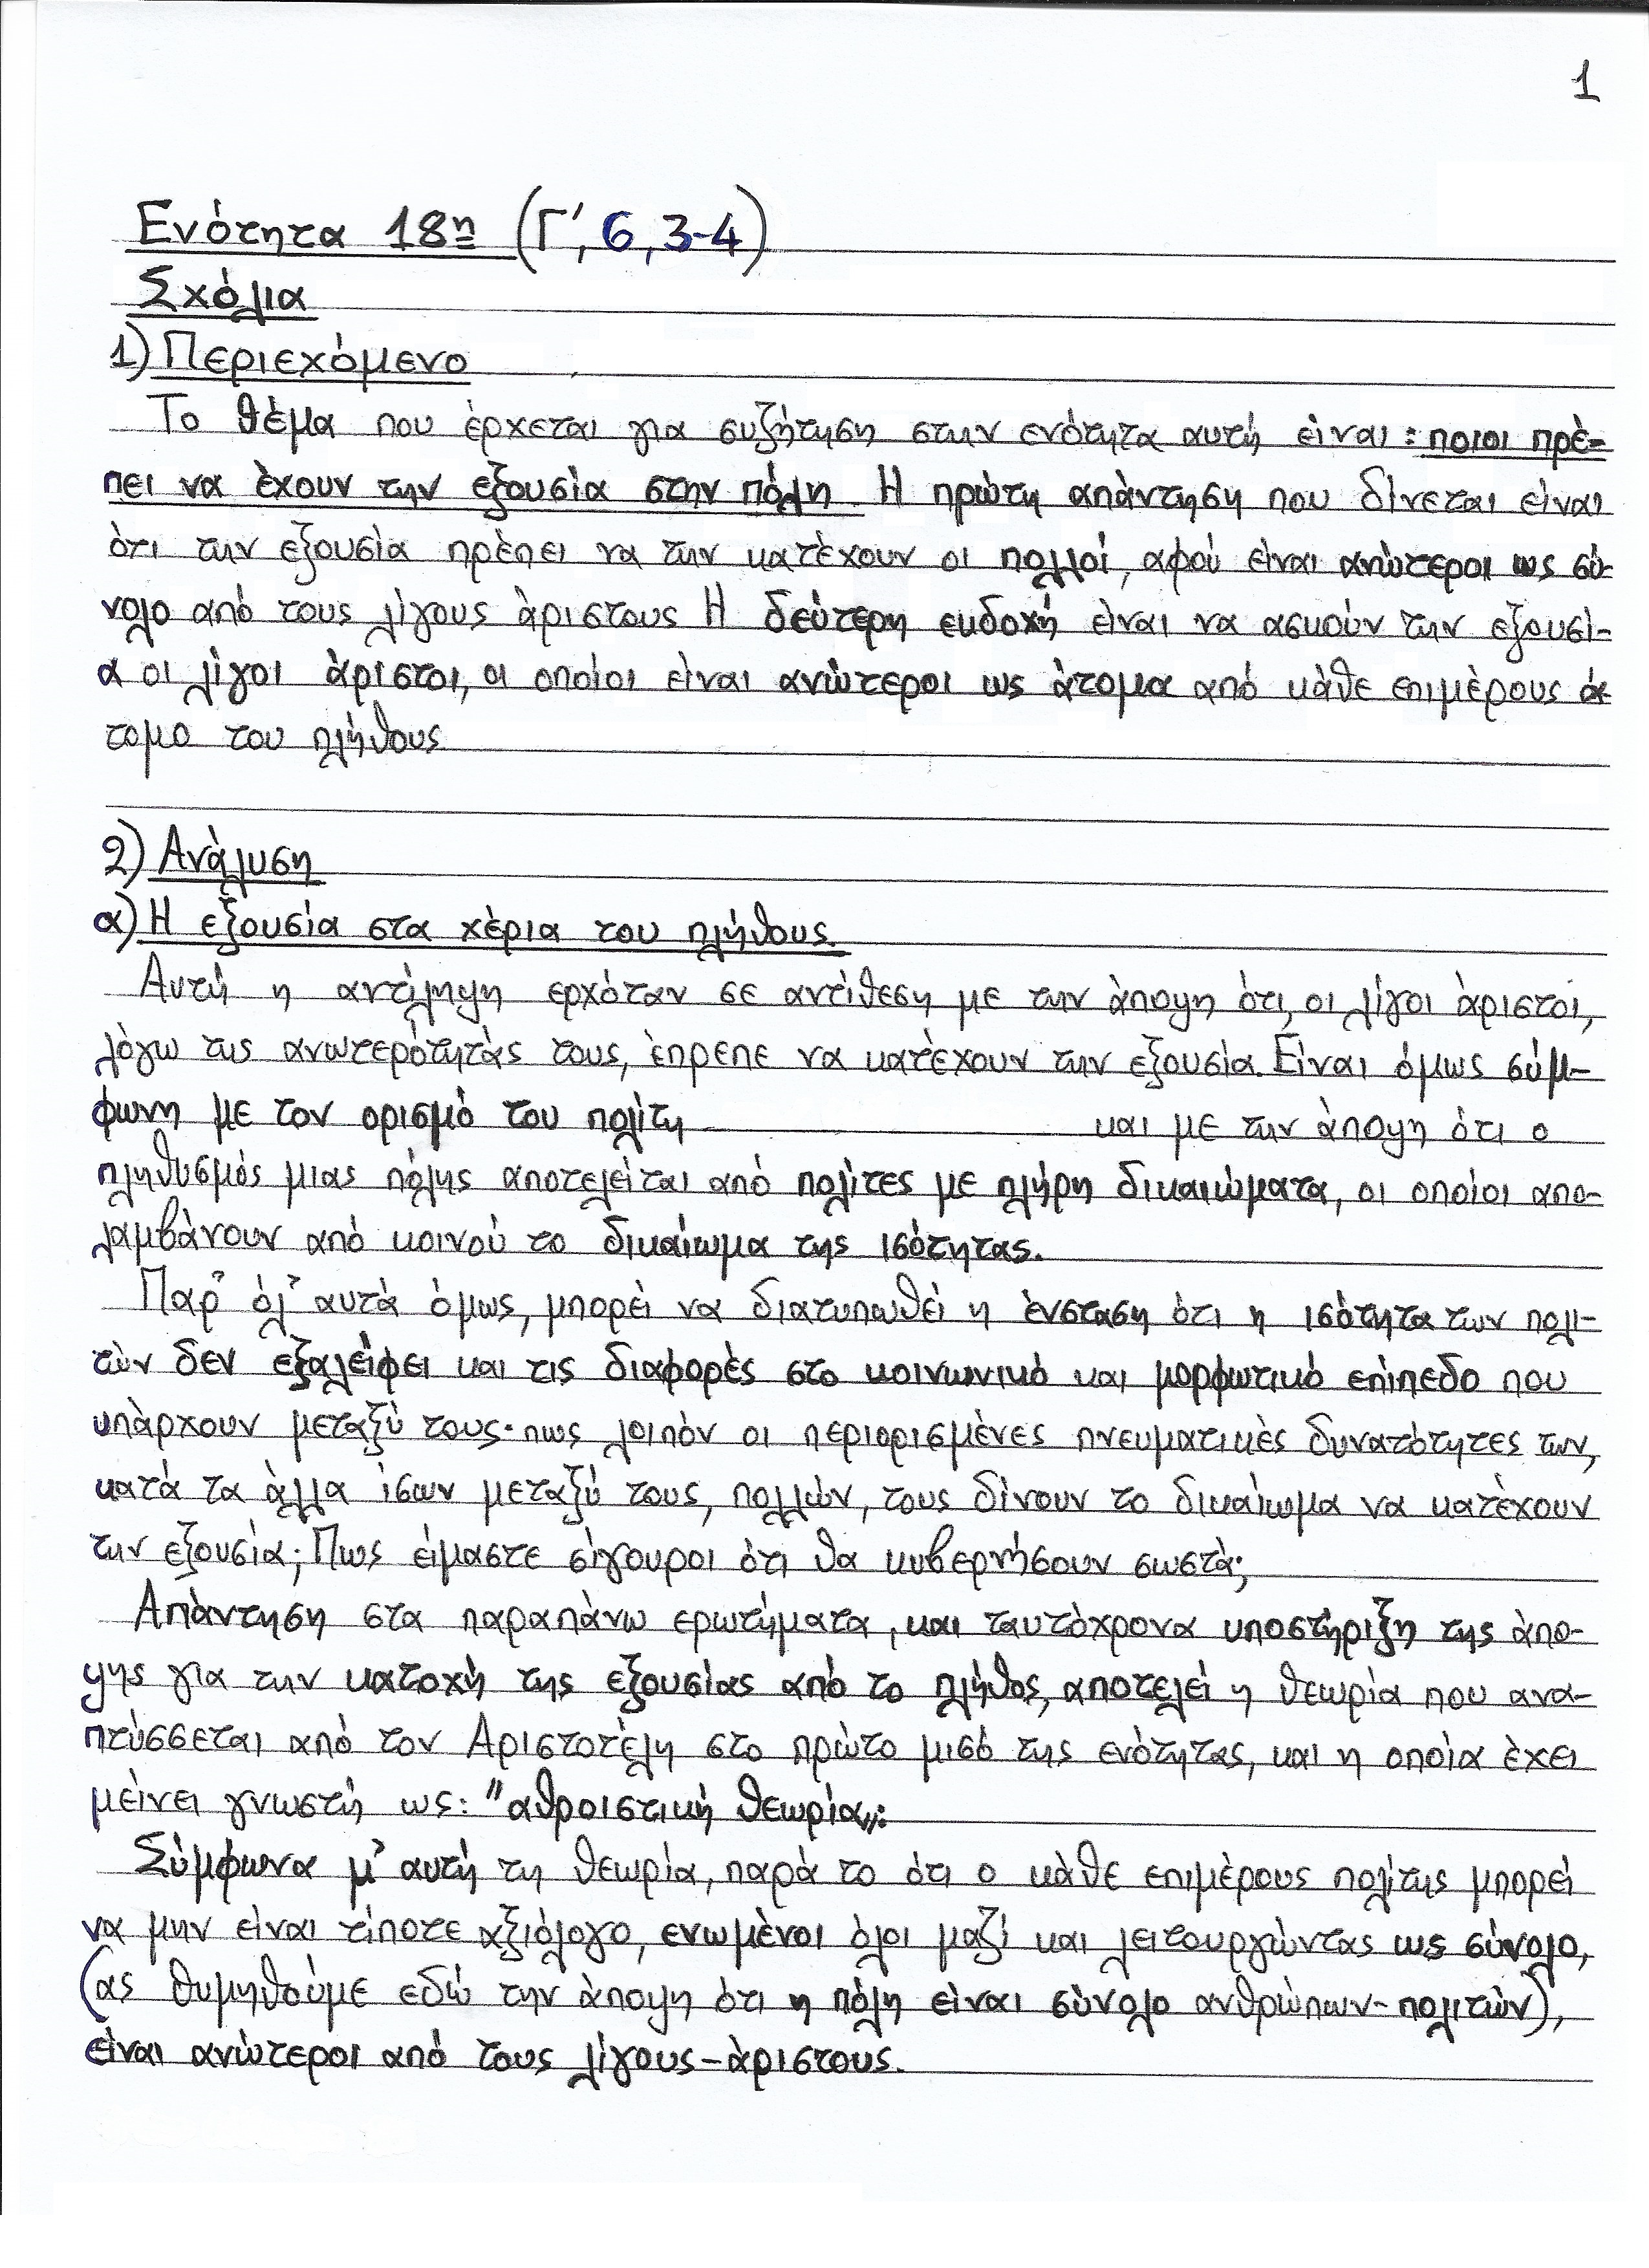 1
Ενότητα 18η (Γ', 6, 3-4)
Σχόλια
1) Περιεχόμενο
Το θέμα που έρχεται για συζήτηση στην ενότητα αυτή είναι: ποιοι πρέ-
πει να έχουν την εξουσία στην πόλη. Η πρώτη απάντηση που δίνεται είναι
ότι την εξουσία πρέπει να την κατέχουν οι πολλοί, αφού είναι ανώτεροι ως σύ-
νολο από τους λίγους άριστους Η δεύτερη εκδοχή είναι να ασκούν την εξουσί-
α οι λίγοι άριστοι, οι οποίοι είναι ανώτεροι ως άτομα από κάθε επιμέρους ά-
τομο του πλήθους
2) Ανάλυση
α) Η εξουσία στα χέρια του πλήθους.
Αυτή η αντίληψη ερχόταν σε αντίθεση με την άποψη ότι, οι λίγοι άριστοι,
λόγω της ανωτερότητάς τους, έπρεπε να κατέχουν την εξουσία. Είναι όμως σύμ-
φωνη με τον ορισμό του πολίτη και με την άποψη ότι ο
πληθυσμός μιας πόλης αποτελείται από πολίτες με πλήρη δικαιώματα, οι οποίοι απο-
λαμβάνουν από κοινού το δικαίωμα της ισότητας.
Παρ' όλ' αυτά όμως, μπορεί να διατυπωθεί η ένσταση ότι η ισότητα των πολι-
τών δεν εξαλείφει και τις διαφορές στο κοινωνικό και μορφωτικό επίπεδο που
υπάρχουν μεταξύ τους· πως λοιπόν οι περιορισμένες πνευματικές δυνατότητες των,
κατά τα άλλα ίσων μεταξύ τους, πολλών, τους δίνουν το δικαίωμα να κατέχουν
την εξουσία; Πως είμαστε σίγουροι ότι θα κυβερνήσουν σωστά;
Απάντηση στα παραπάνω ερωτήματα, και ταυτόχρονα υποστήριξη της άπο-
ψης για την κατοχή της εξουσίας από το πλήθος, αποτελεί η θεωρία που ανα-
πτύσσεται από τον Αριστοτέλη στο πρώτο μισό της ενότητας, και η οποία έχει
μείνει γνωστή ως: "αθροιστική θεωρία":
Σύμφωνα μ' αυτή τη θεωρία, παρά το ότι ο κάθε επιμέρους πολίτης μπορεί
να μην είναι τίποτε αξιόλογο, ενωμένοι όλοι μαζί και λειτουργώντας ως σύνολο,
(ας θυμηθούμε εδώ την άποψη ότι η πόλη είναι σύνολο ανθρώπων-πολιτών),
είναι ανώτεροι από τους λίγους-άριστους.